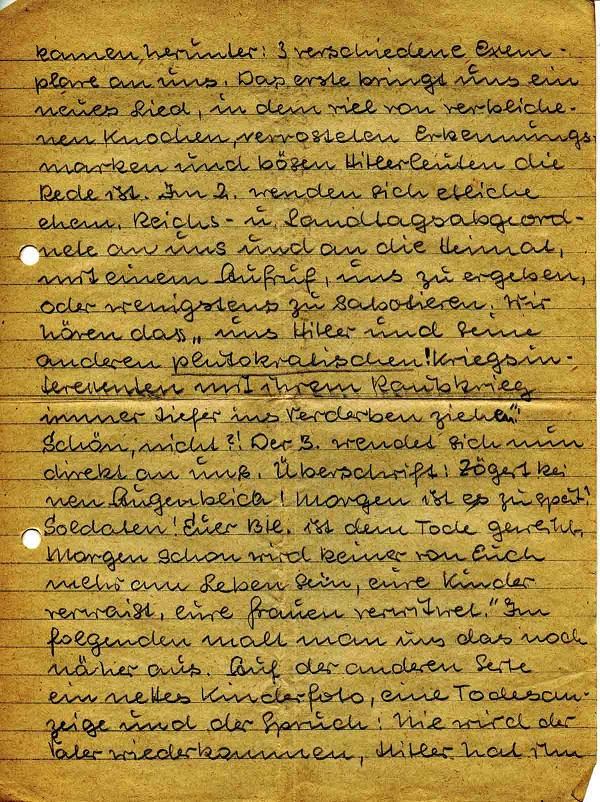 kamen, herunter: 3 verschiedene Exem-
plare an uns. Das erste bringt uns ein
neues Lied, in dem viel von verbliche-
nen Knochen, verrosteten Erkennungs-
marken und bösen Hitlerleuten die
Rede ist. Im 2. wenden sich etliche
ehem. Reichs- u. Landtagsabgeord-
nete an uns und an die Heimat,
mit einem Aufruf, uns zu ergeben,
oder wenigstens zu sabotieren. Wir
hören das „uns Hitler und seine
anderen plutokratischen! Kriegsin-
teressenten mit ihrem Raubkrieg
immer tiefer ins Verderben ziehen"!
Schön, nicht?! Der 3. wendet sich nun
direkt an uns. Überschrift: Zögert kei
nen Augenblick! Morgen ist es zu spät!
Soldaten! Euer Btl. ist dem Tode geweiht,
Morgen schon wird keiner von Euch
mehr am Leben sein, eure Kinder
verwaist, eure Frauen verwitwet." Im
folgenden malt man uns das noch
näher aus. Auf der anderen Seite
ein nettes Kinderfoto, eine Todesan-
zeige und der Spruch: Nie wird der
Vater wiederkommen, Hitler hat ihn